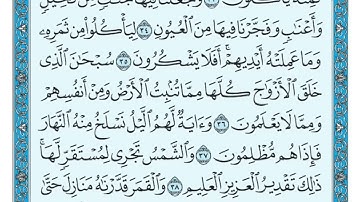 وَأَعْنَٰبٍ وَفَجَّرْنَا فِيهَا مِنَ ٱلْعُيُونِ ٣٤ لِيَأْكُلُوا۟ مِن ثَمَرِهِۦ
وَمَا عَمِلَتْهُ أَيْدِيهِمْ ۖ أَفَلَا يَشْكُرُونَ ٣٥ سُبْحَٰنَ ٱلَّذِى
خَلَقَ ٱلْأَزْوَٰجَ كُلَّهَا مِمَّا تُنۢبِتُ ٱلْأَرْضُ وَمِنْ أَنفُسِهِمْ
وَمِمَّا لَا يَعْلَمُونَ ٣٦ وَءَايَةٌ لَّهُمُ ٱلَّيْلُ نَسْلَخُ مِنْهُ ٱلنَّهَارَ
فَإِذَا هُم مُّظْلِمُونَ ٣٧ وَٱلشَّمْسُ تَجْرِى لِمُسْتَقَرٍّ لَّهَا ۚ
ذَٰلِكَ تَقْدِيرُ ٱلْعَزِيزِ ٱلْعَلِيمِ ٣٨ وَٱلْقَمَرَ قَدَّرْنَٰهُ مَنَازِلَ حَتَّىٰ